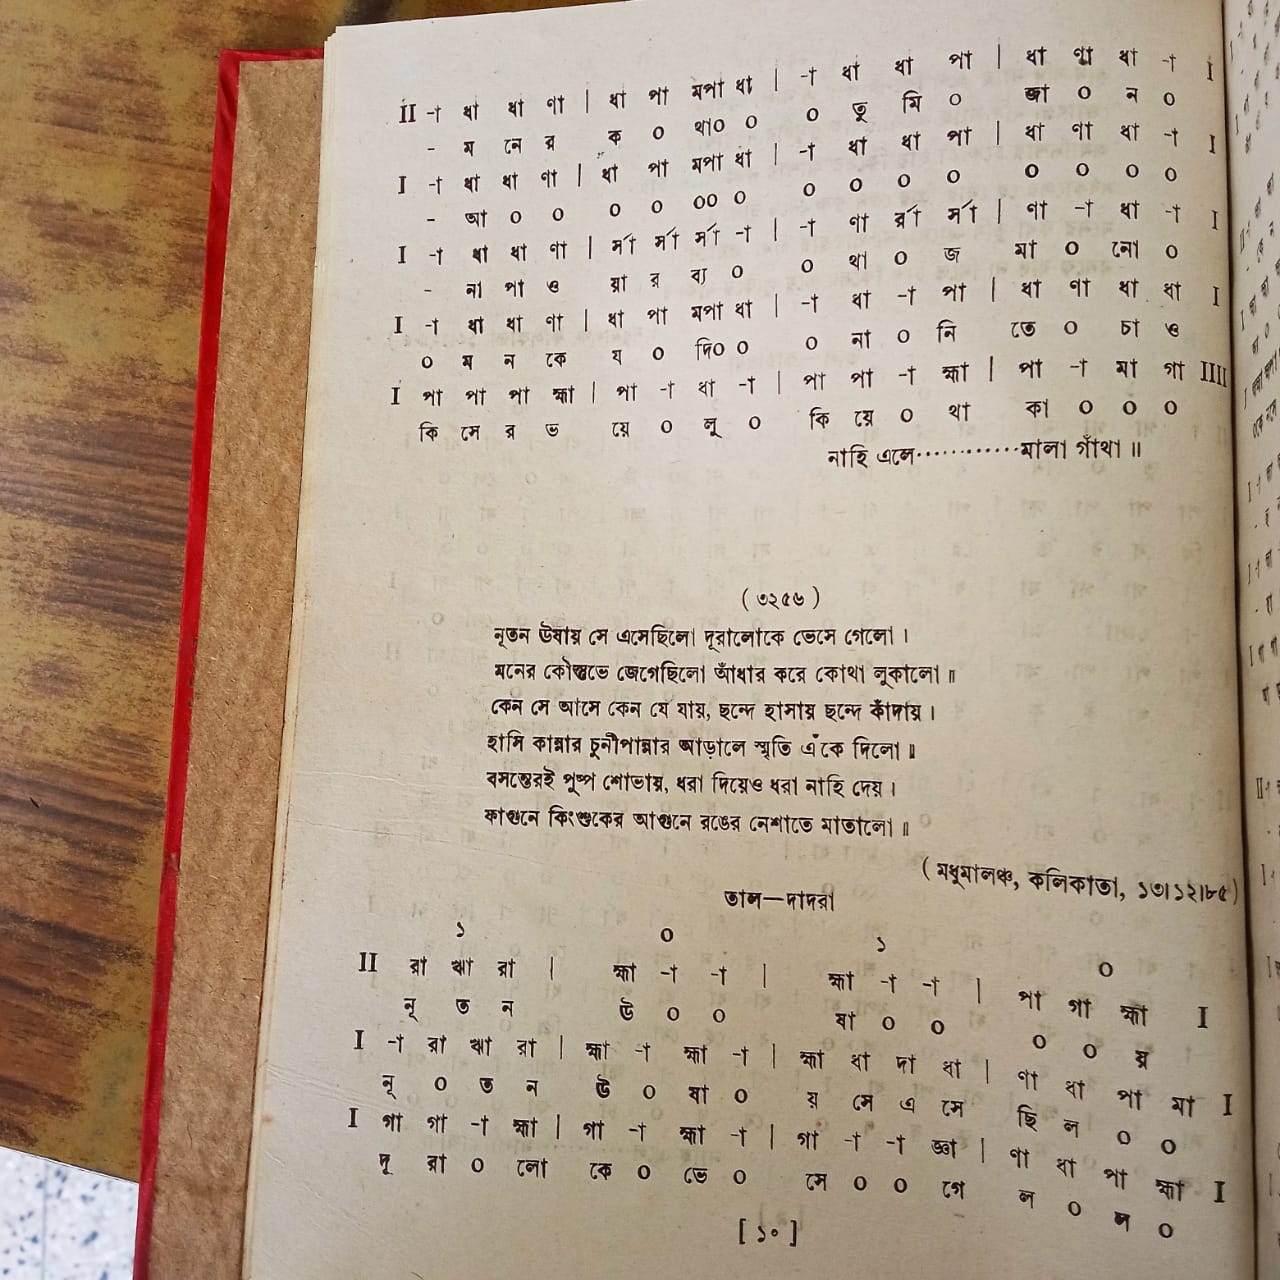 II -া ধা ধা ণা | ধা পা মপা ধা | -া ধা ধা পা | ধা ণা ধা -া I
- ম নে র ক ০ থা০ ০ ০ তু মি ০ জা ০ ন ০
I -া ধা ধা ণা | ধা পা মপা ধা | -া ধা ধা পা | ধা ণা ধা -া I
- আ ০ ০ ০ ০ ০০ ০ ০ ০ ০ ০ ০ ০ ০ ০
I -া ধা ধা ণা | র্সা র্সা র্সা -া | -া ণা র্রা র্সা | ণা -া ধা -া I
- না পাও য়া র ব্য ০ ০ থা ০ জ মা ০ নো ০
I -া ধা ধা ণা | ধা পা মপা ধা | -া ধা -া পা | ধা ণা ধা ধা I
০ ম ন কে য ০ দি০ ০ ০ না ০ নি তে ০ চা ও
I পা পা পা হ্মা | পা -া ধা -া | পা পা -া হ্মা | পা -া মা গা IIII
কি সে র ভ য়ে ০ লু ০ কি য়ে ০ থা কা ০ ০ ০
নাহি এলে············মালা গাঁথা ॥
( ৩২৫৬ )
নূতন উষায় সে এসেছিলো দূরালোকে ভেসে গেলো ।
মনের কৌস্তুভে জেগেছিলো আঁধার করে কোথা লুকালো ॥
কেন সে আসে কেন যে যায়, ছন্দে হাসায় ছন্দে কাঁদায় ।
হাসি কান্নার চুনীপান্নার আড়ালে স্মৃতি এঁকে দিলো ॥
বসন্তেরই পুষ্প শোভায়, ধরা দিয়েও ধরা নাহি দেয় ।
ফাগুনে কিংশুকের আগুনে রঙের নেশাতে মাতালো ॥
( মধুমালঞ্চ, কলিকাতা, ১৩।১২।৮৫ )
তাল—দাদরা
১ ০ ১ ০
II রা ঋা রা | হ্মা -া -া | হ্মা -া -া | পা গা হ্মা I
নূ ত ন উ ০ ০ ষা ০ ০ ০ ০ য়
I -া রা ঋা রা | হ্মা -া হ্মা -া | হ্মা ধা দা ধা | ণা ধা পা মা I
নূ ০ ত ন উ ০ ষা ০ য় সে এ সে ছি ল ০ ০
I গা গা -া হ্মা | গা -া হ্মা -া | গা -া -া জ্ঞা | ণা ধা পা হ্মা I
দূ রা ০ লো কে ০ ভে ০ সে ০ ০ গে ল ০ ল ০
[ ১০ ]